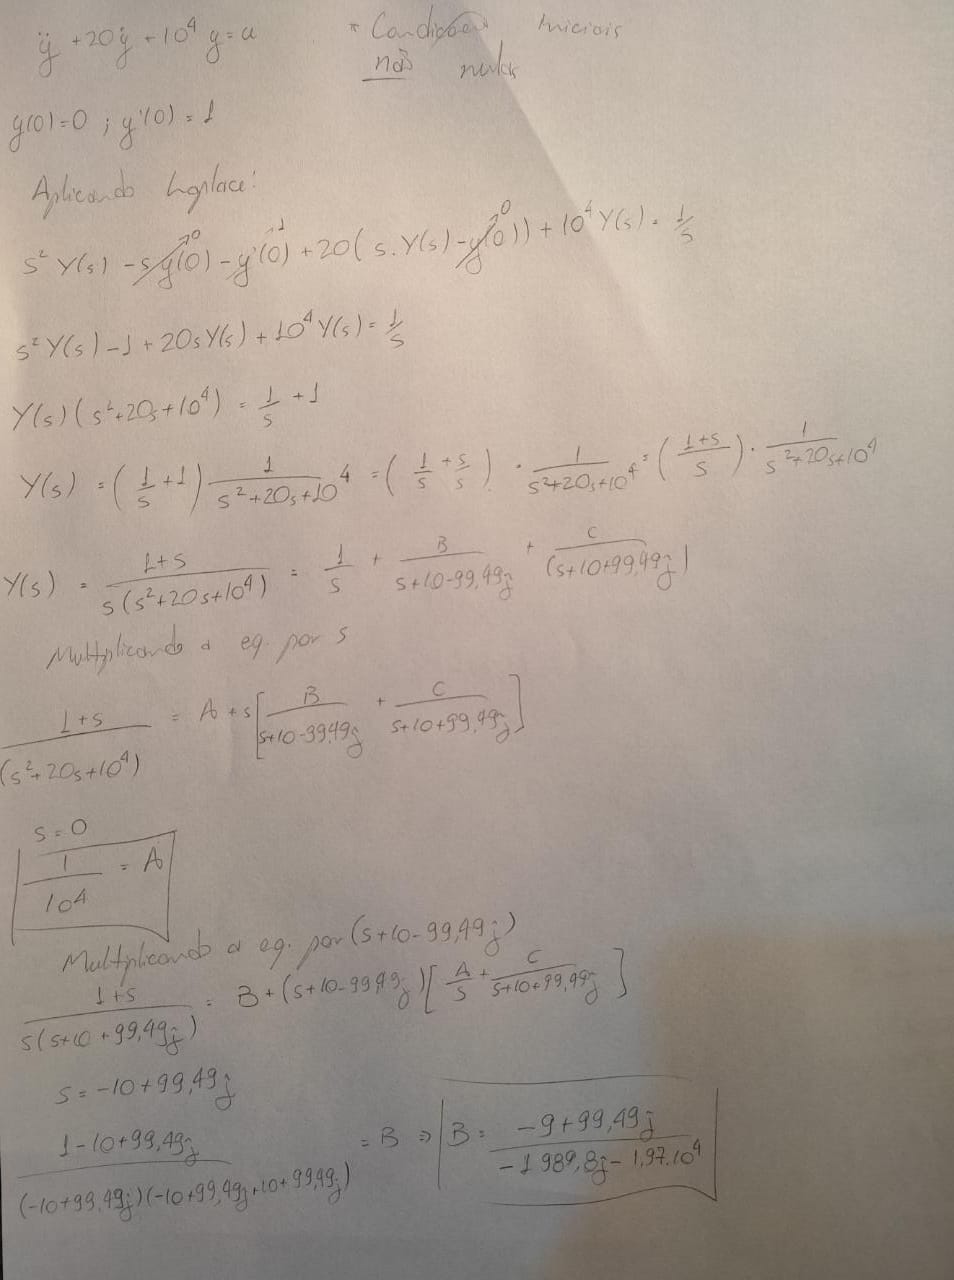 ÿ + 20ẏ + 10⁴ y = u * Condições Iniciais
não nulas
y(0) = 0 ; y'(0) = 1
Aplicando Laplace:
s² Y(s) - s y(0)↗0 - y'(0)↗1 + 20( s. Y(s) - y(0)↗0 ) + 10⁴ Y(s) = 1/s
s² Y(s) - 1 + 20s Y(s) + 10⁴ Y(s) = 1/s
Y(s) ( s² + 20s + 10⁴ ) = 1/s + 1
Y(s) = ( 1/s + 1 ) 1/(s² + 20s + 10⁴) = ( 1/s + s/s ) · 1/(s² + 20s + 10⁴) = ( (1+s)/s ) · 1/(s² + 20s + 10⁴)
Y(s) = (1+s)/(s (s² + 20s + 10⁴)) = 1/s + B/(s+10-99,49j) + C/(s+10+99,49j)
Multiplicando a eq. por s
(1+s)/(s² + 20s + 10⁴) = A + s [ B/(s+10-99,49j) + C/(s+10+99,49j) ]
s = 0
1/10⁴ = A
Multiplicando a eq. por (s+10-99,49j)
(1+s)/(s(s+10+99,49j)) = B + (s+10-99,49j) [ A/s + C/(s+10+99,49j) ]
s = -10+99,49j
(1-10+99,49j)/((-10+99,49j)(-10+99,49j+10+99,49j)) = B ⇒ B = (-9+99,49j)/(-1989,8j - 1,97.10⁴)